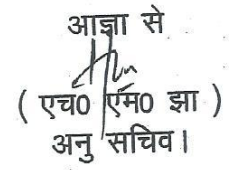 आज्ञा से
( एच0 एम0 झा )
अनु सचिव।